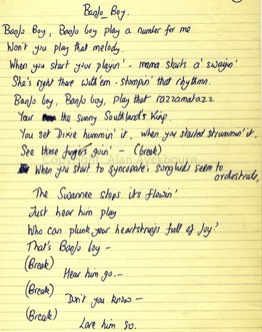 Banjo Boy.
Banjo Boy, Banjo boy play a number for me
Won't you play that melody.
When you start your playin' - mama starts a' swayin'
She's right there with 'em - stompin' that rhythm.
Banjo boy, Banjo boy, play that razzamatazz
Your the sunny Southland's King.
You set Dixie hummin' it, when you started strummin' it.
See those fingers goin' - (break)
When you start to syncopate, songbirds seem to orchestrate,
The Swannee stops its flowin'
Just hear him play
Who can plunk your heartstrings full of Joy?
That's Banjo boy -
(Break)
Hear him go. -
(Break)
Don't you know -
(Break)
Love him go.